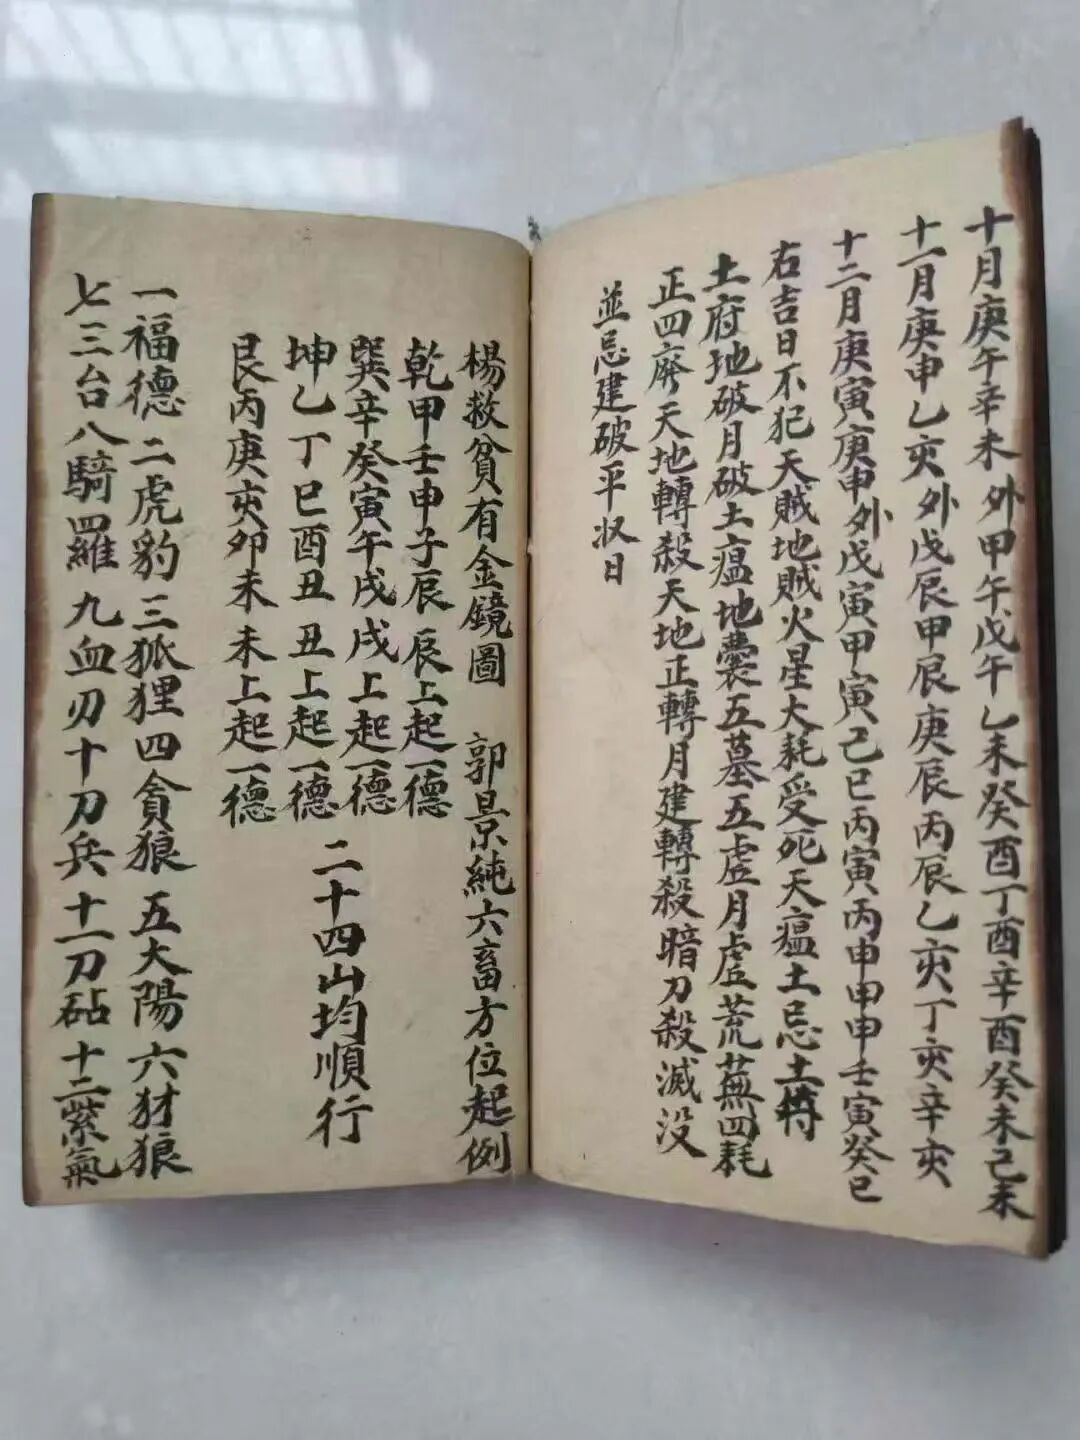 十月庚午辛未外甲午戊午乙未癸酉丁酉辛酉癸未己未
十一月庚申乙亥外戊辰甲辰庚辰丙辰乙亥丁亥辛亥
十二月庚寅庚申外戊寅甲寅己巳丙寅丙申甲申壬寅癸巳
右吉日不犯天賊地賊火星大耗受死天瘟土忌土
土府地破月破土瘟地囊五墓五虚月虚荒蕪四耗
正四廢天地轉殺天地正轉月建轉殺暗刀殺滅没
並忌建破平收日
楊救貧有金鏡圖 郭景純六畜方位起例
乾甲壬申子辰 辰上起一德
巽辛癸寅午戌 戌上起一德
坤乙丁巳酉丑 丑上起一德
艮丙庚亥卯未 未上起一德
二十四山均順行
一福德 二虎豹 三狐狸 四貪狼 五大陽 六豺狼
七三台 八騎羅 九血刃 十刀兵 十一刀砧 十二紫氣